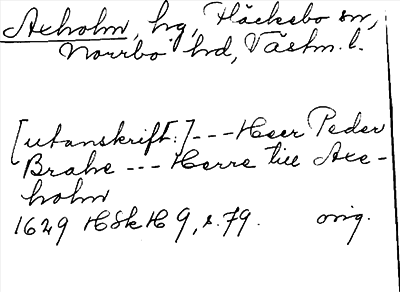 Axholm, hg, Fläckebo sn,
Norrbo hd, Västm. l.
[utanskrift:] --- Heer Peder
Brahe --- Herre till Axe-
holm
1629 HSkH 9, s. 79. orig.